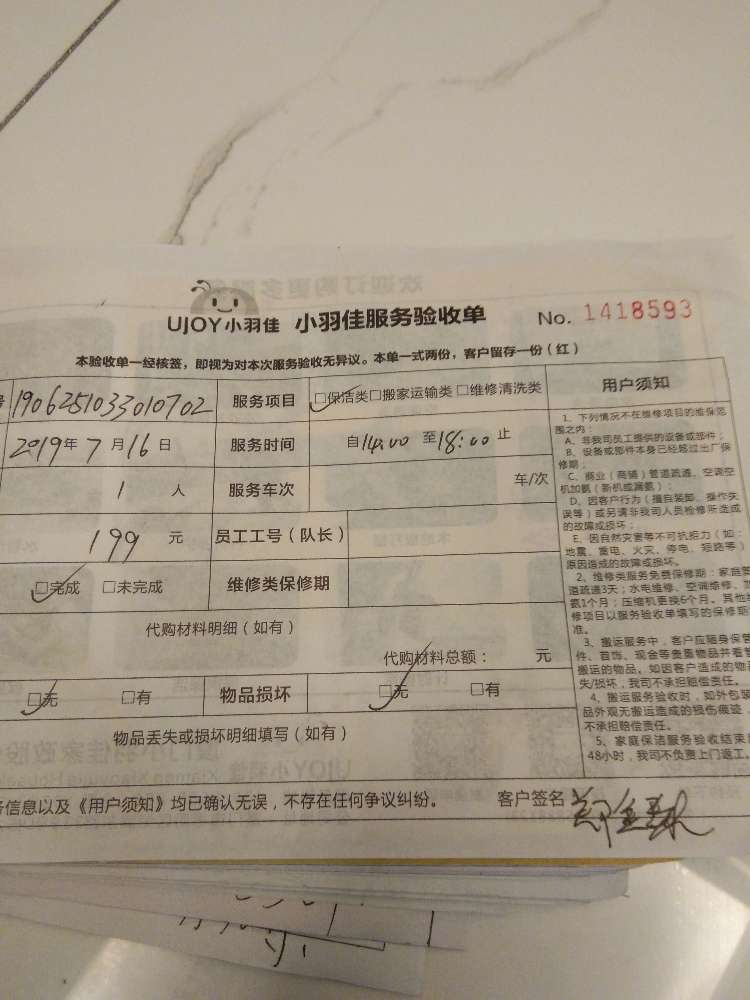 UJOY小羽佳 小羽佳服务验收单 No. 1418593
本验收单一经核签，即视为对本次服务验收无异议。本单一式两份，客户留存一份（红）
号 1906251033010702 服务项目 □保洁类□搬家运输类□维修清洗类
2019年7月16日 服务时间 自14:00至18:00止
1 人 服务车次 车/次
199 元 员工工号（队长）
□完成 □未完成 维修类保修期
代购材料明细（如有）
代购材料总额： 元
□无 □有 物品损坏 □无 □有
物品丢失或损坏明细填写（如有）
务信息以及《用户须知》均已确认无误，不存在任何争议纠纷。 客户签名
用户须知
1、下列情况不在维修项目的维保范
围之内：
A、非我司员工提供的设备或部件；
B、设备或部件本身已经超过出厂保
修期；
C、商业（商铺）管道疏通、空调空
机加氨（新机或漏氨）；
D、因客户行为（擅自装卸、操作失
误等）或另请非我司人员检修所造成
的故障或损坏；
E、因自然灾害等不可抗拒力（如：
地震、雷电、火灾、停电、短路等）
原因造成的故障或损坏。
2、维修类服务免费保修期：家庭管
道疏通3天；水电维修、空调维修、加
氨1个月；压缩机更换6个月。其他维
修项目以服务验收单填写的保修期
准。
3、搬运服务中，客户应随身保管
件、首饰、现金等贵重物品并看管
搬运的物品。如因客户造成的物品
失/损坏，我司不承担赔偿责任。
4、搬运服务验收时，如外包装
品外观无搬运造成的损伤痕迹
不承担赔偿责任。
5、家庭保洁服务验收结束后
48小时，我司不负责上门返工。